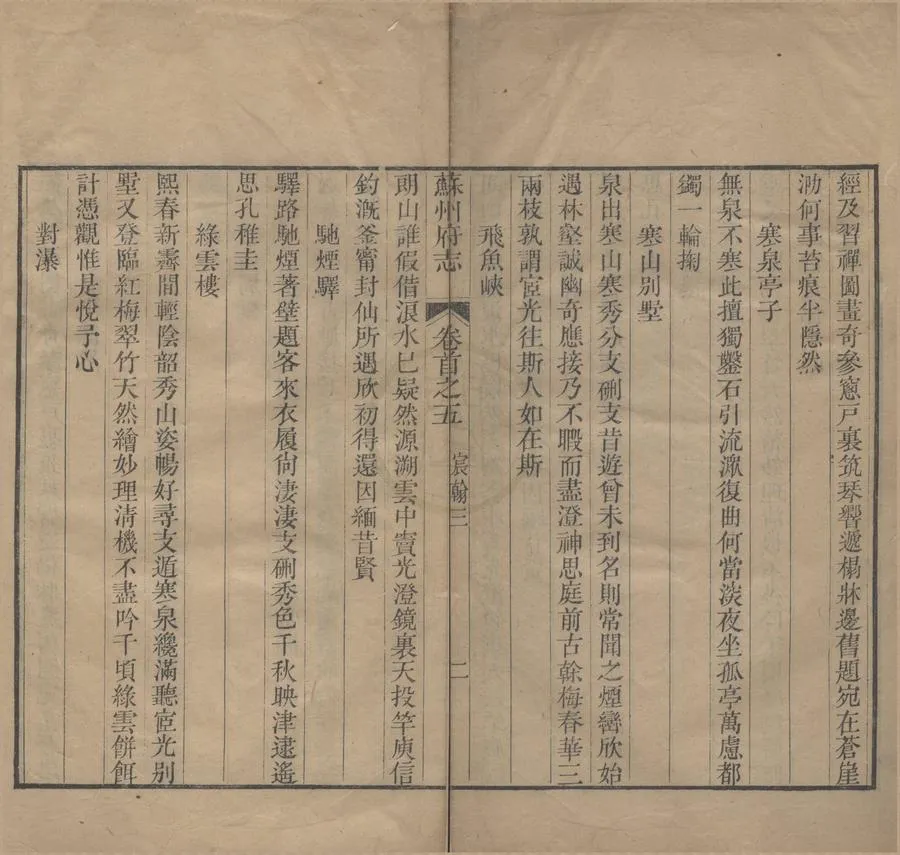 經及習禪圖畫奇參窓戸裏筑琴響遞榻牀邊舊題宛在蒼崖
泐何事苔痕半隱然
寒泉亭子
無泉不寒此擅獨鑿石引流潨復曲何當淡夜坐孤亭萬慮都
蠲一輪掬
寒山別墅
泉出寒山寒秀分支硎支昔遊曾未到名則常聞之煙巒欣始
遇林壑誠幽奇應接乃不暇而盡澄神思庭前古榦梅春華三
兩枝孰謂宧光往斯人如在斯
飛魚峽
蘇州府志
卷首之五
宸翰三
二
朗山誰假借浪水已疑然源溯雲中竇光澄鏡裏天投竿庾信
釣漑釜甯封仙所遇欣初得還因緬昔賢
馳煙驛
驛路馳煙著壁題客來衣履尙淒淒支硎秀色千秋映津逮遙
思孔稚圭
綠雲樓
熙春新霽閒輕陰韶秀山姿暢好尋支遁寒泉纔滿聽宧光別
墅又登臨紅梅翠竹天然繪妙理清機不盡吟千頃綠雲餅餌
計憑觀惟是悅予心
對瀑